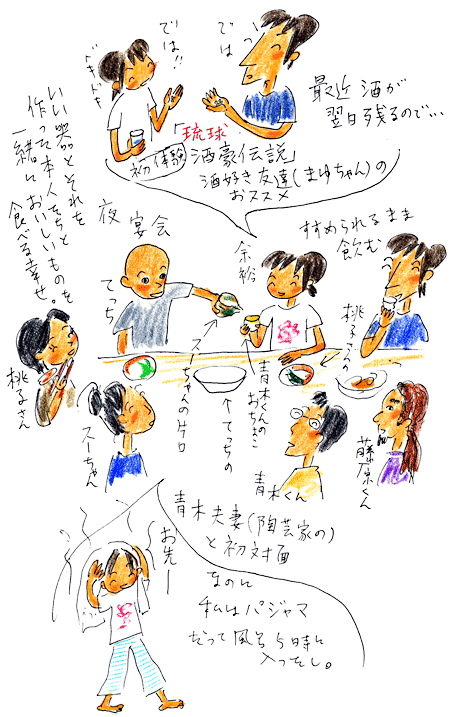 では
では!!
ドキドキ
最近 酒が
翌日残るので…
「琉球
酒豪伝説」
初体験
酒好き友達(まゆちゃん)の
おススメ
いい器とそれを
作った本人たちと
おいしいものを
一緒に食べる幸せ。
夜 宴会
てっち
余裕
すすめられるまま
飲む
桃子さんの
桃子さん
スーちゃん
スーちゃんの片口
てっちの
青木くんの
おちょこ
青木くん
藤原くん
青木夫妻(陶芸家の)
と初対面
なのに
私はパジャマ
だって風呂5時に
入ったし。
お先ー